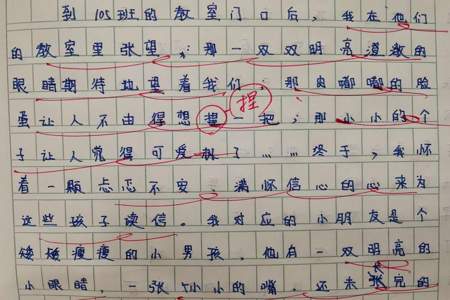 到105班的教室门口后，我在他们
的教室里张望，：那一双双明亮清澈的
眼睛期待地望着我们，那肉嘟嘟的脸
蛋让人不由得想捏一把；那小小的个
捏
子让人觉得可爱极了……终于，我怀
着一颗忐忑不安、满怀信心的心来为
这些孩子读信。我对应的小朋友是个
矮矮瘦瘦的小男孩，他有一双明亮的
小眼睛，一张小小的嘴，还未张完的